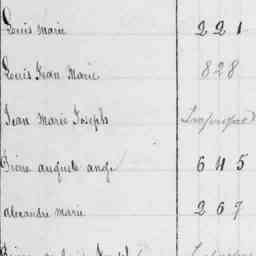 Louis Marie 221
Louis Jean Marie 828
Jean Marie Joseph
Pierre auguste ange 645
alexandre marie 269